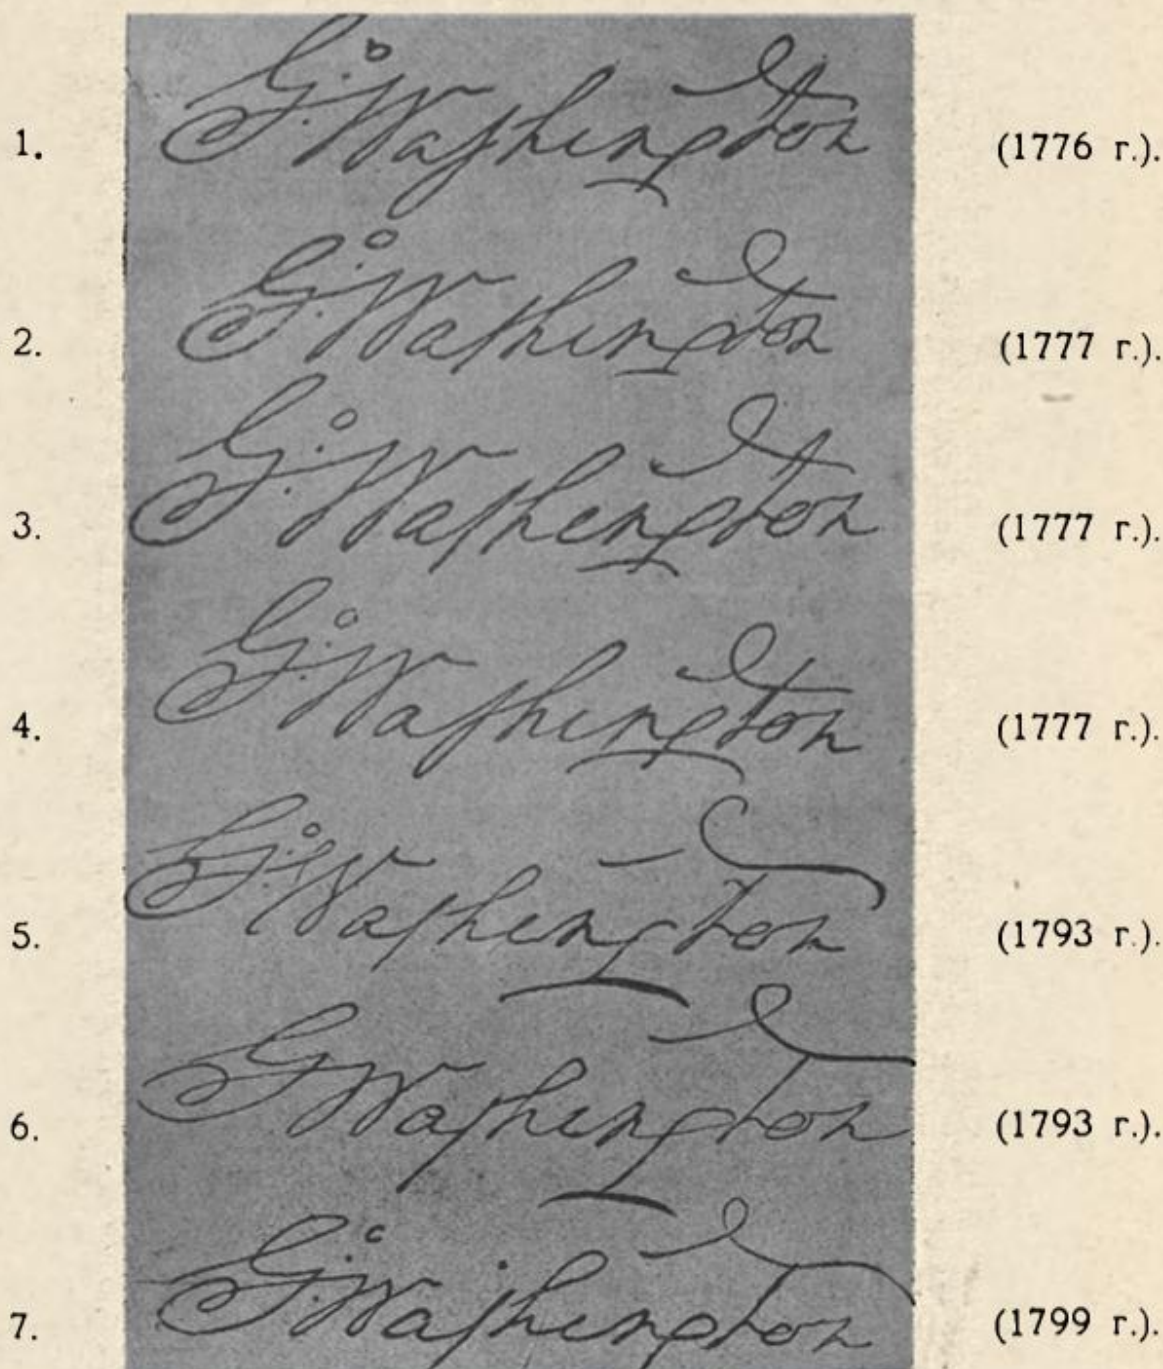 1. G:º Washington (1776 г.).
2. G:º Washington (1777 г.).
3. G:º Washington (1777 г.).
4. G:º Washington (1777 г.).
5. G:º Washington (1793 г.).
6. G Washington (1793 г.).
7. G:º Washington (1799 г.).